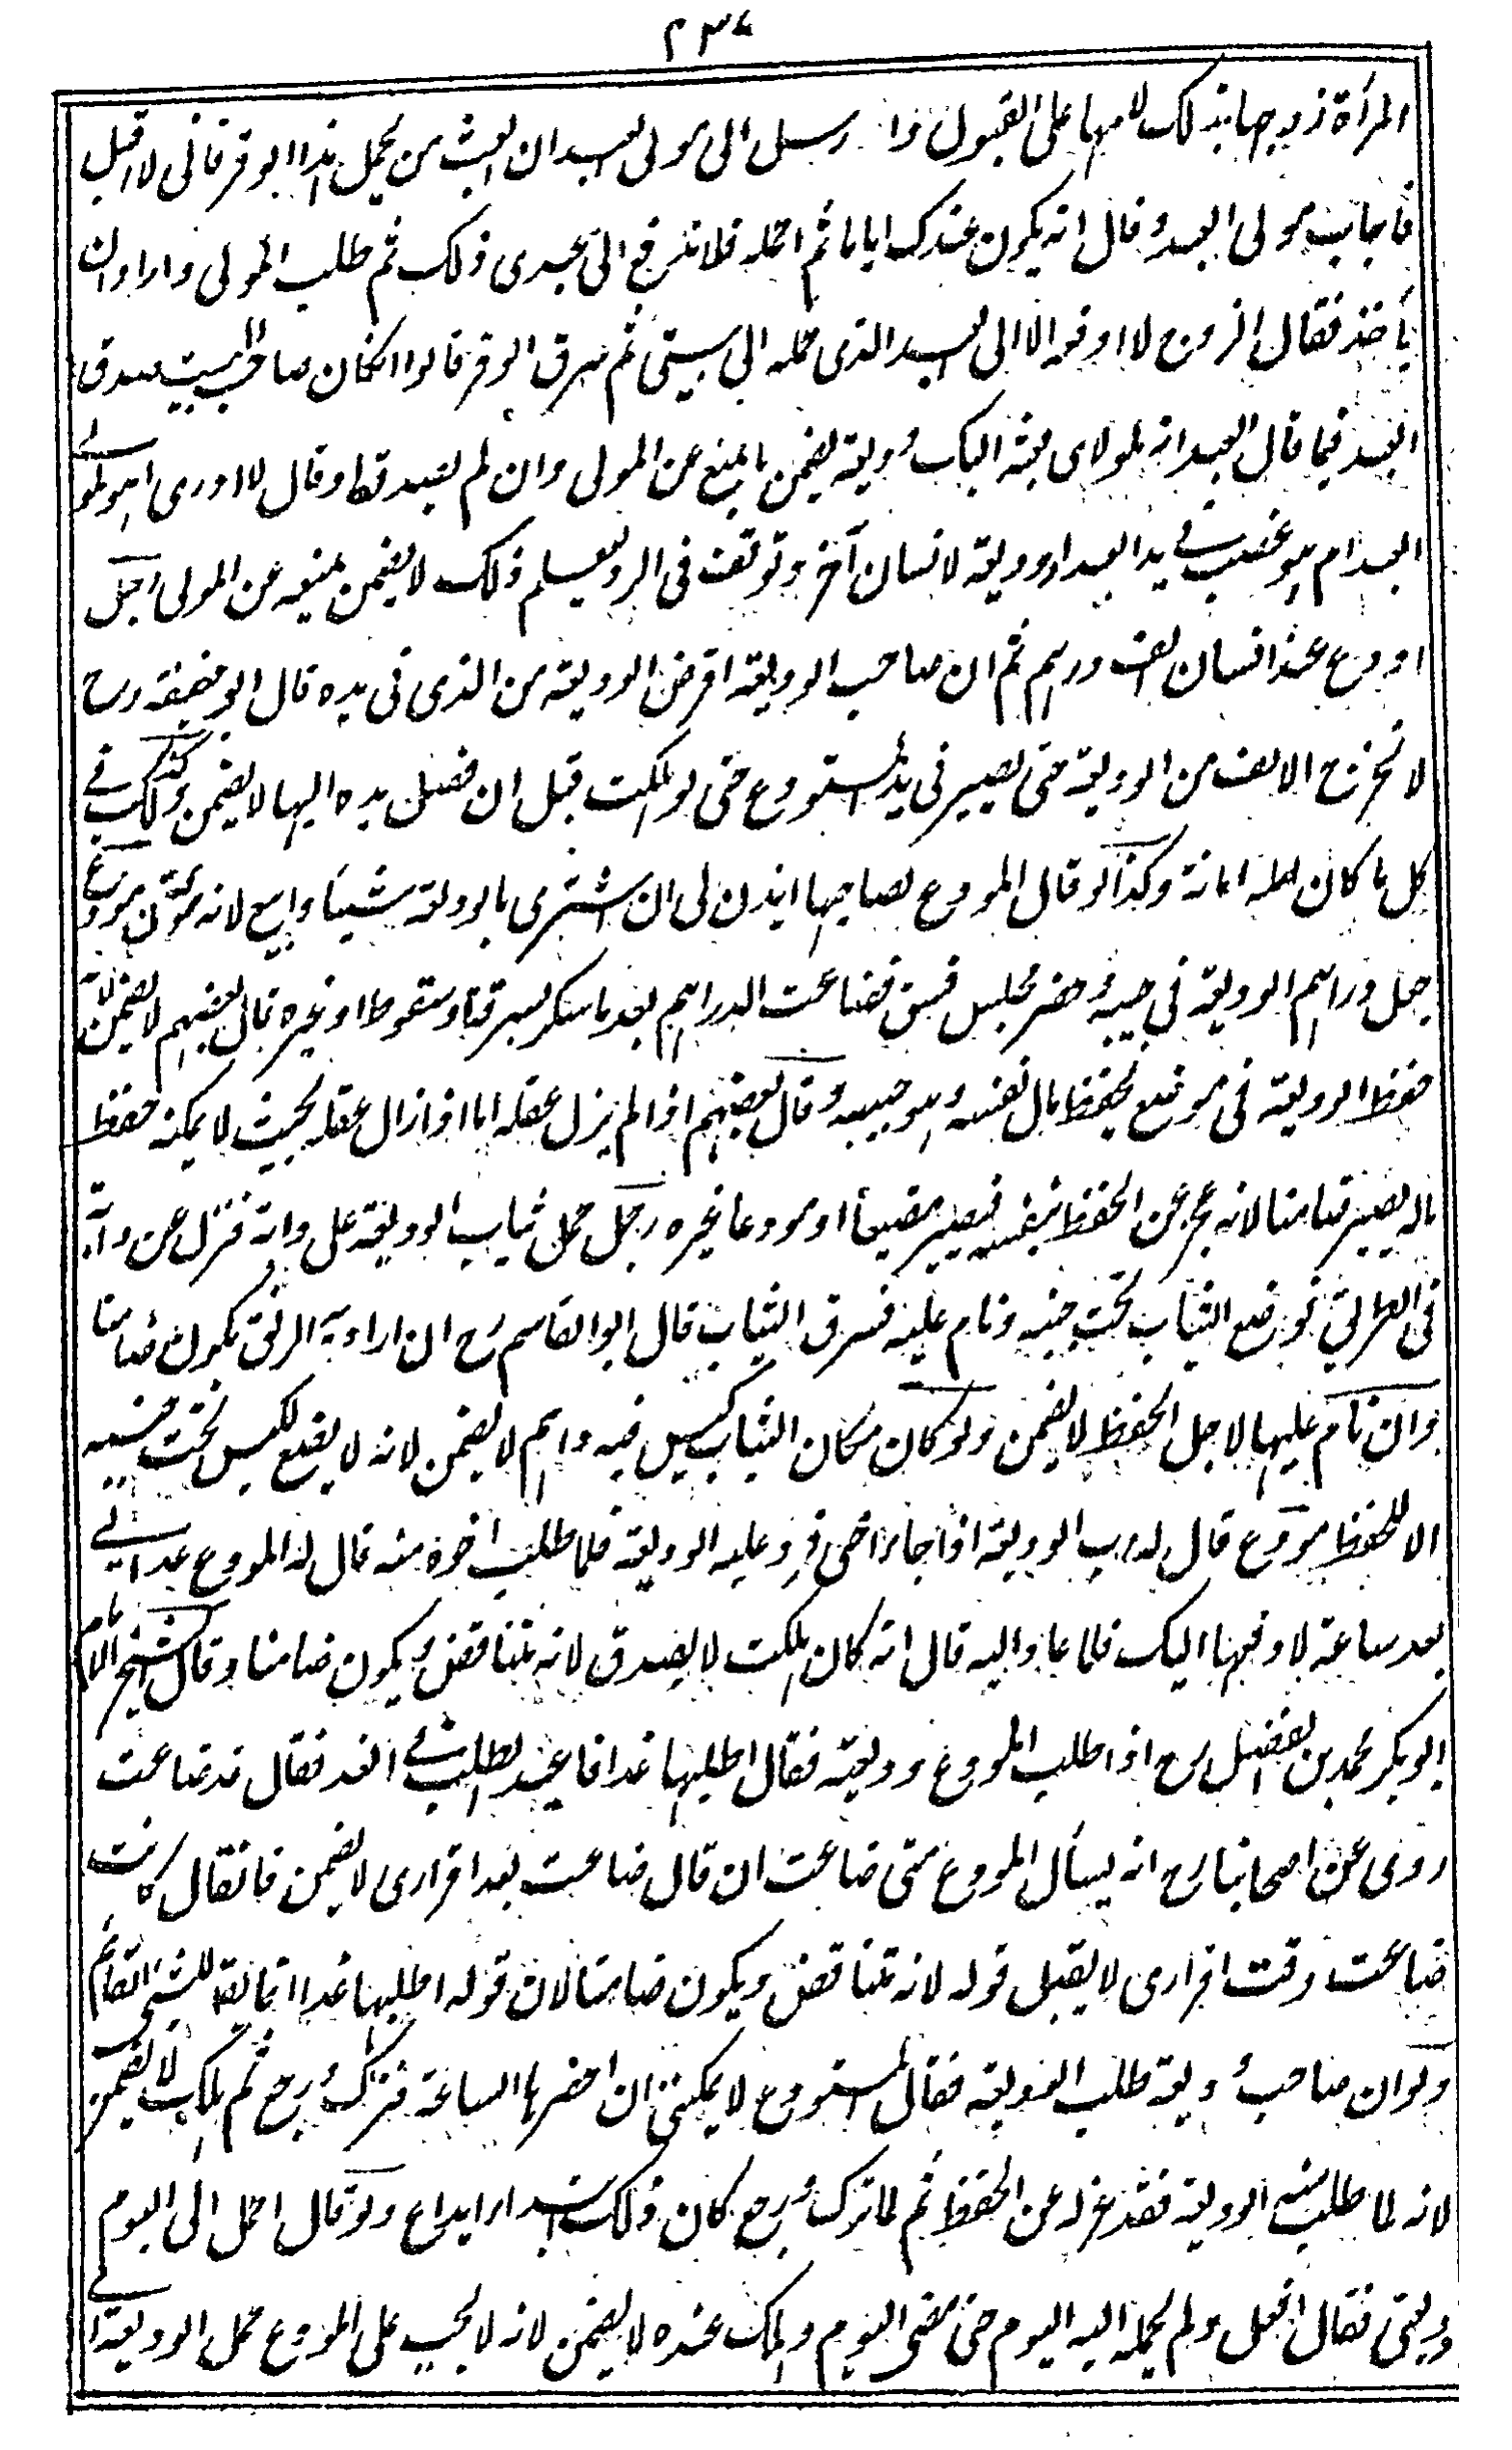 ٢٣٤
المرأة زوجها بذلك لامها على القبول وارسل الى مولى العبد ان ابعث من يحمل هذا الوقر فانى لا اقبل
فاجاب مولى العبد وقال انه يكون عندك اياما ثم احمله فلا تدفع الى عبدى ذلك ثم طلب المولى واراد ان
يأخذ فقال الزوج لا ادفعه الا الى العبد الذى حمله الى بيتى ثم سرق الوقر قالوا ان كان صاحب البيت صدق
العبد فيما قال العبد انه لمولاى بعثه اليك وديعة يضمن بالمنع عن المولى وان لم يصدقه او قال لا ادرى اهو لمولى
العبد ام هو غصب فى يد العبد او وديعة لانسان آخر وتوقف فى الرد ليعلم ذلك لا يضمن بمنعه عن المولى رجل
اودع عند انسان الف درهم ثم ان صاحب الوديعة اقرض الوديعة من الذى فى يده قال ابو حنيفة رح
لا تخرج الالف من الوديعة حتى يصير فى يد المستودع حتى لو هلكت قبل ان تصل يده اليها لا يضمن وكذلك فى
كل ما كان اصله امانة وكذا لو قال المودع لصاحبها ايذن لى ان اشترى بالوديعة شيئا وابيع لانه مؤتمن مودع
جعل دراهم الوديعة فى جيبه وحضر مجلس فسق فضاعت الدراهم بعد ما سكر بسرقة او سقوط او غيره قال بعضهم لا يضمن لانه
حفظ الوديعة فى موضع يحفظ مال نفسه وهو جيبه وقال بعضهم اذا لم يزل عقله اما اذا زال عقله بحيث لا يمكنه حفظ
ماله يصير ضامنا لانه عجز عن الحفظ بنفسه فيصير مضيعا او مودعا غيره رجل حمل ثياب الوديعة على دابة فنزل عن دابته
فى الطريق فوضع الثياب تحت جنبه ونام عليه فسرق الثياب قال ابو القاسم رح ان اراد به الرفق يكون ضامنا
وان نام عليها لاجل الحفظ لا يضمن ولو كان مكان الثياب كيس فيه دراهم لا يضمن لانه لا يضع الكيس تحت جنبيه
الا للحفظ مودع قال له رب الوديعة اذا جاء اخى فرد عليه الوديعة فلما طلب اخوه منه قال له المودع عد الى
بعد ساعة لادفعها اليك فلما عاد اليه قال انه كان هلكت لا يصدق لانه متناقض ويكون ضامنا وقال الشيخ الامام
ابو بكر محمد بن الفضل رح اذا طلب المودع وديعته فقال اطلبها غدا فاعيد الطلب فى الغد فقال قد ضاعت
روى عن اصحابنا رح انه يسأل المودع متى ضاعت ان قال ضاعت بعد اقرارى لا يضمن فان قال كانت
ضاعت وقت اقرارى لا يقبل قوله لانه متناقض ويكون ضامنا لان قوله اطلبها غدا انما يقال للشئ القائم
ولو ان صاحب وديعة طلب الوديعة فقال المستودع لا يمكننى ان احضرها الساعة فترك ورجع ثم هلكت لا يضمن
لانه لما طلب منه الوديعة فقد عزله عن الحفظ ثم لما ترك ورجع كان ذلك ابتداء ايداع ولو قال احمل الى اليوم
وديعتى فقال افعل ولم يحمله اليه اليوم حتى مضى اليوم وهلك عنده لا يضمن لانه لا يجب على المودع حمل الوديعة